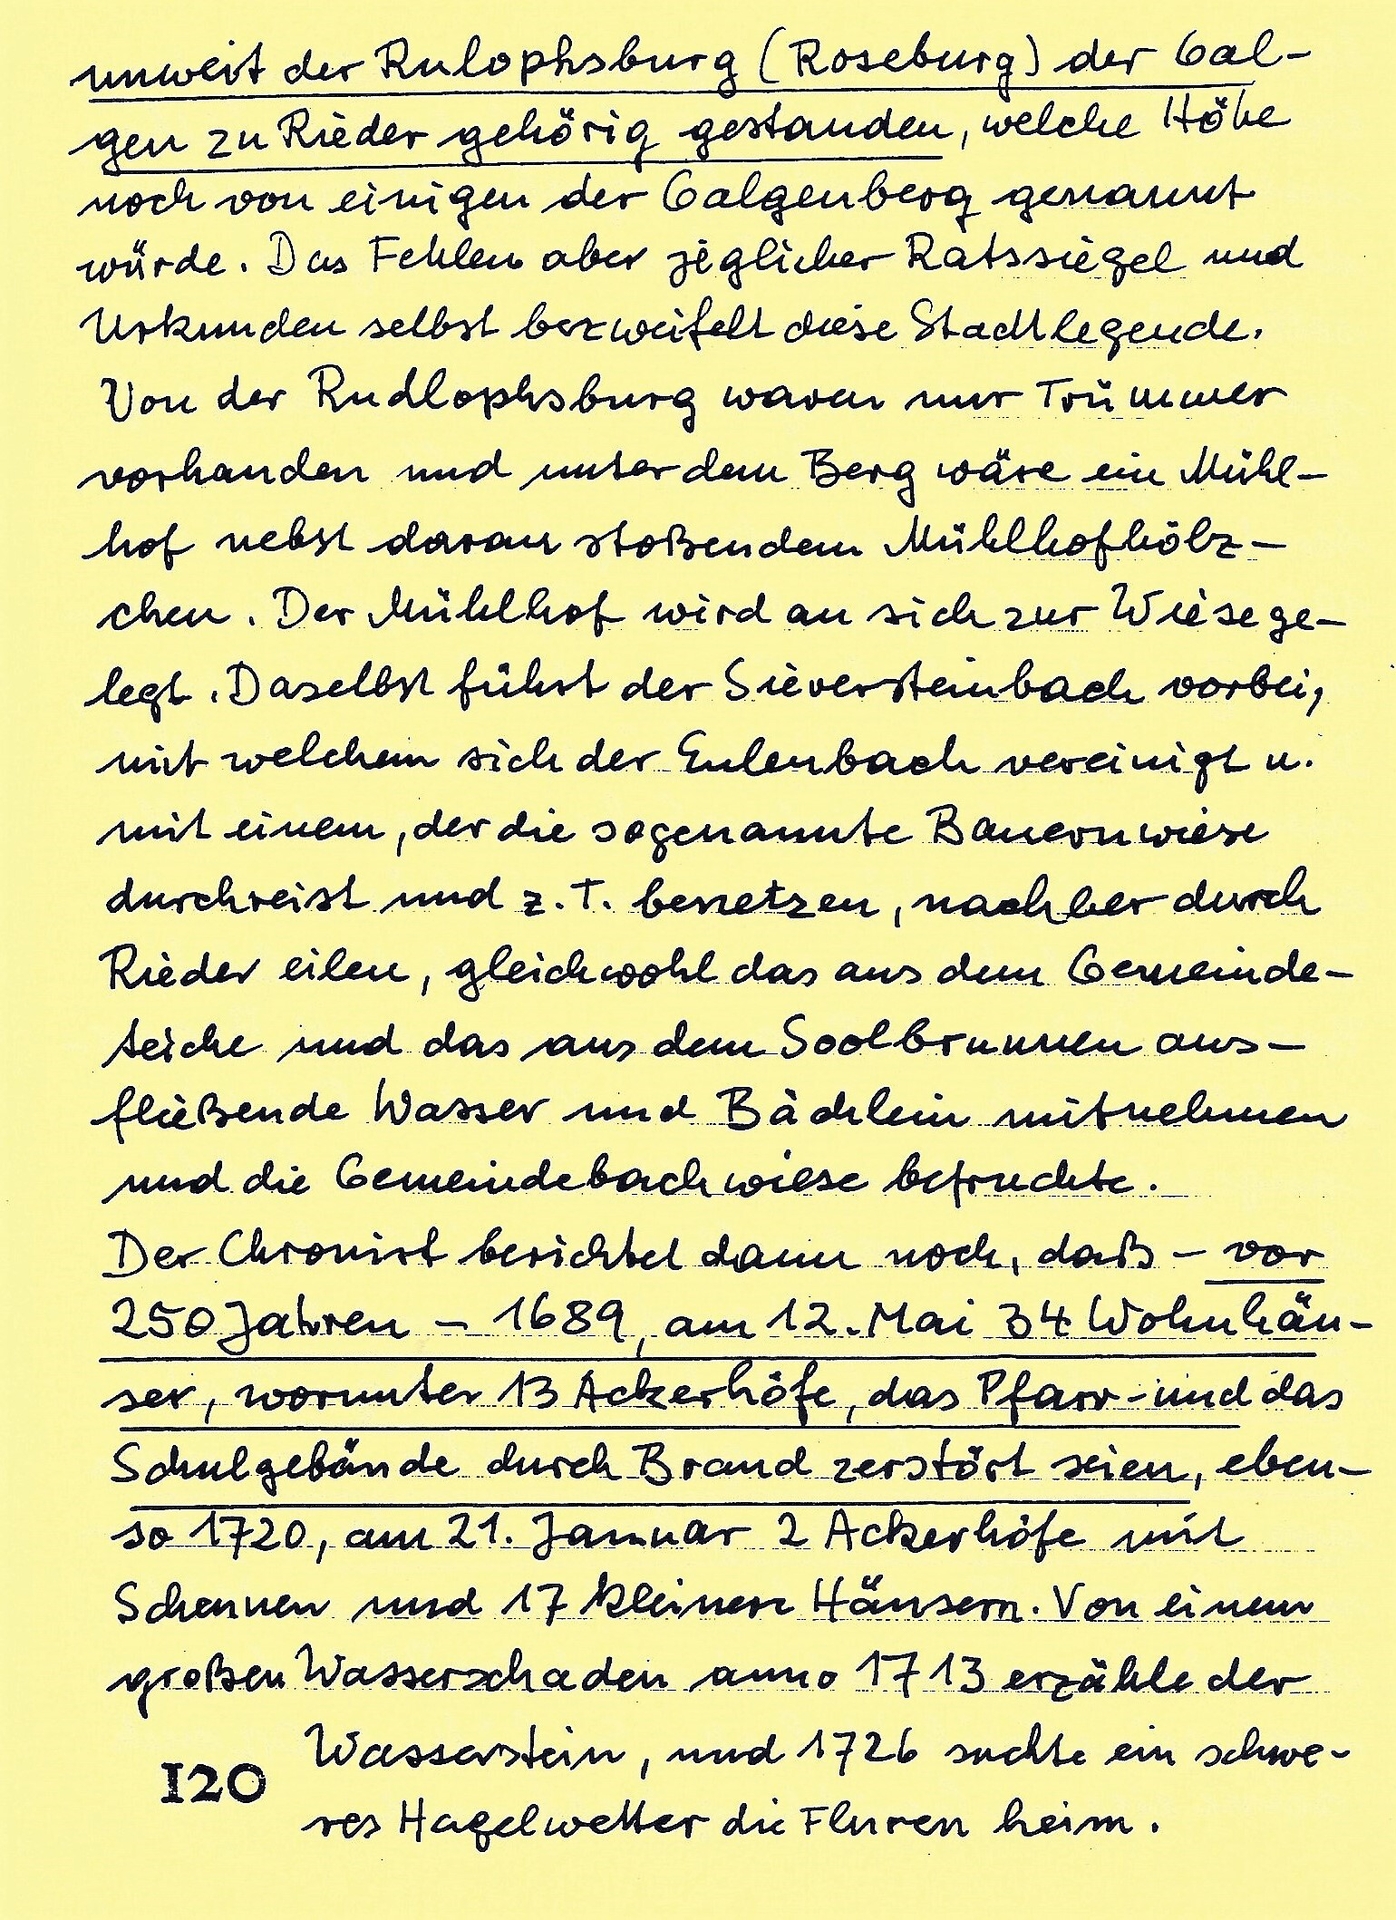 unweit der Rulophsburg (Roseburg) der Gal-
gen zu Rieder gehörig gestanden, welche Höhe
noch von einigen der Galgenberg genannt
würde. Das Fehlen aber jeglicher Ratssiegel und
Urkunden selbst bezweifelt diese Stadtlegende.
Von der Rudlophsburg waren nur Trümmer
vorhanden und unter dem Berg wäre ein Mühl-
hof nebst daran stoßendem Mühlhofhölz-
chen. Der Mühlhof wird an sich zur Wiese ge-
legt. Daselbst führt der Sieversteinbach vorbei,
mit welchem sich der Eulenbach vereinigt u.
mit einem, der die sogenannte Bauernwiese
durchreist und z. T. benetzen, nachher durch
Rieder eilen, gleichwohl das aus dem Gemeinde-
teiche und das aus dem Soolbrunnen aus-
fließende Wasser und Bächlein mitnehmen
und die Gemeindebachwiese befruchte.
Der Chronist berichtet dann noch, daß - vor
250 Jahren - 1689, am 12. Mai 34 Wohnhäu-
ser, worunter 13 Ackerhöfe, das Pfarr- und das
Schulgebäude durch Brand zerstört seien, eben-
so 1720, am 21. Januar 2 Ackerhöfe mit
Scheunen und 17 kleinere Häusern. Von einem
großen Wasserschaden anno 1713 erzähle der
Wasserstein, und 1726 suchte ein schwe-
res Hagelwetter die Fluren heim.
120